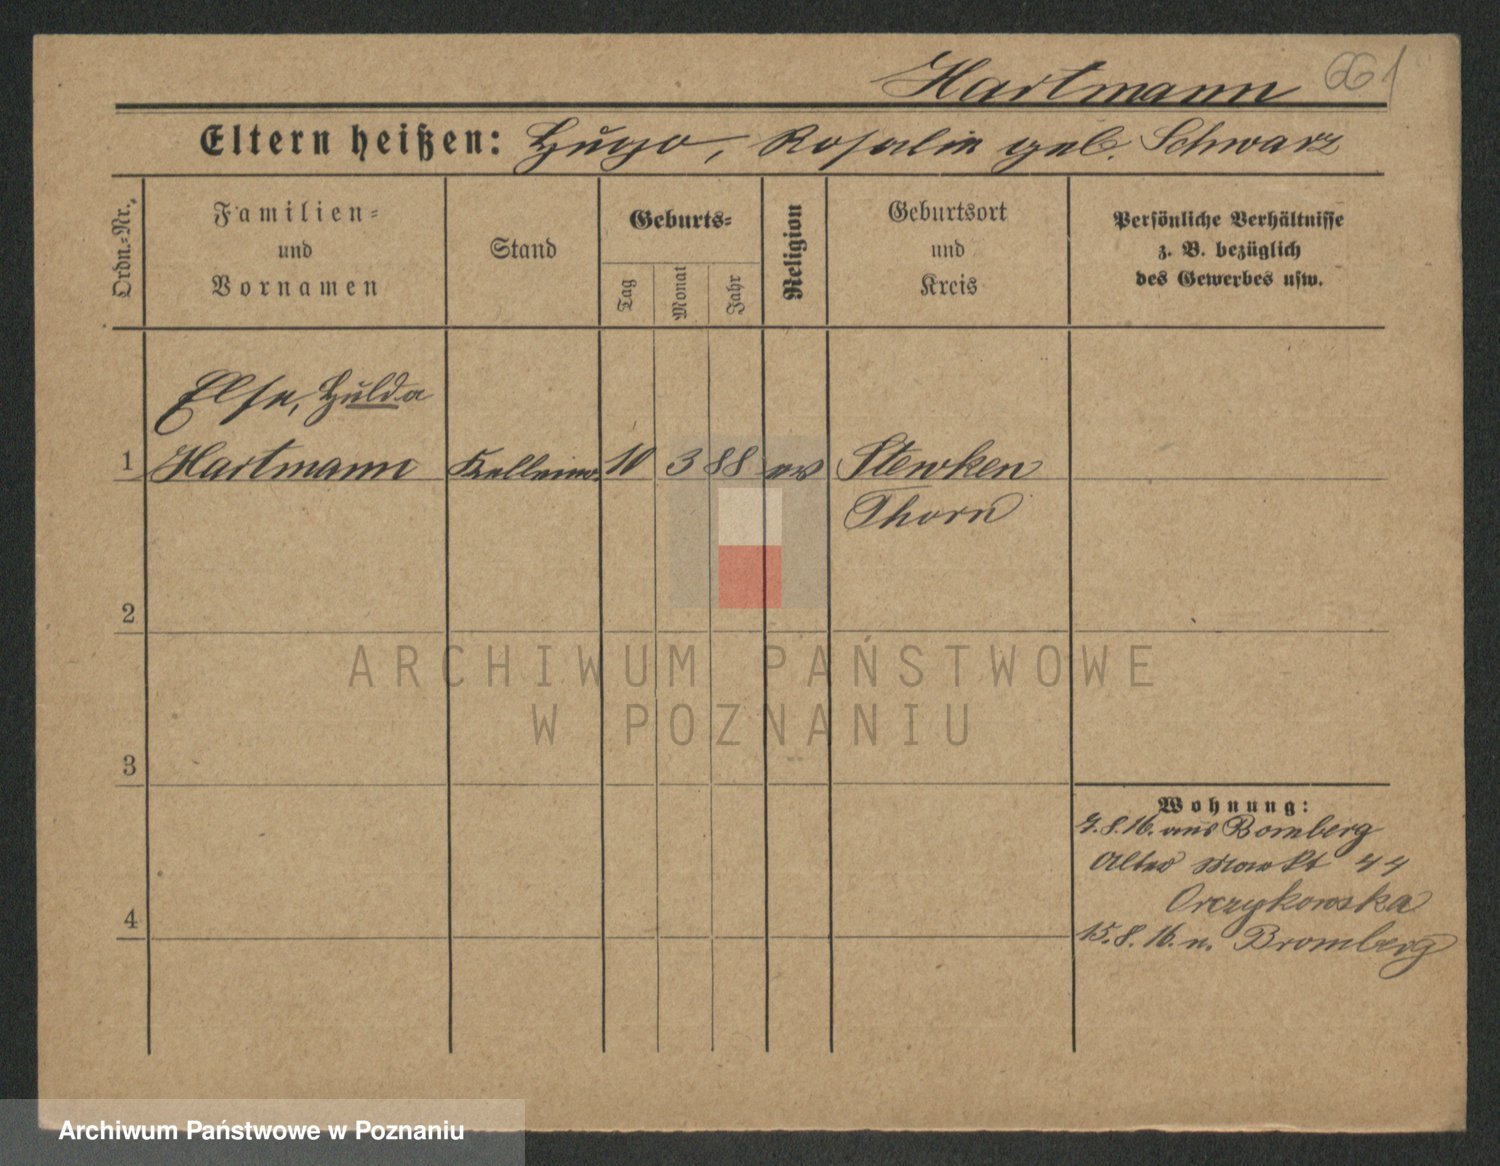 Hartmann 661
Eltern heißen: Hugo, Rosalie geb. Schwarz
Ordn.-Nr.
Familien-
und
Vornamen
Stand
Geburts-
Tag
Monat
Jahr
Religion
Geburtsort
und
Kreis
Persönliche Verhältnisse
z. B. bezüglich
des Gewerbes usw.
Else, Hulda
1 Hartmann Kellnerin 10 3 88 ev Stewken
Thorn
2
ARCHIWUM PAŃSTWOWE
W POZNANIU
3
Wohnung:
7.8.16. aus Bomberg
Alter Markt 44
Orczykowska
4
15.8.16. n. Bromberg
Archiwum Państwowe w Poznaniu